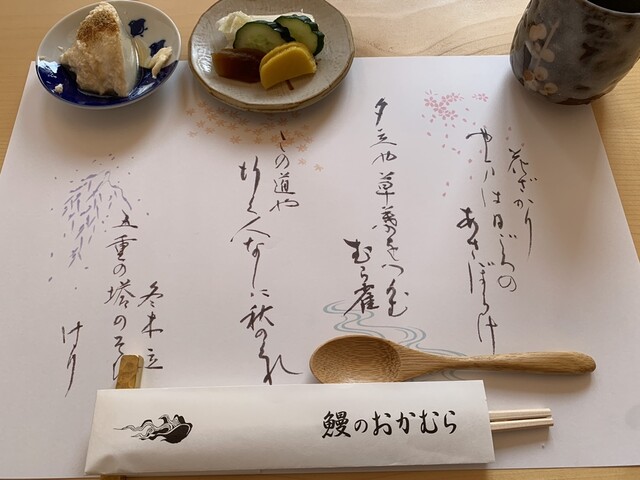 花ざかり
やまは日ごろの
あさぼらけ
夕立や草葉をつかむ
むら雀
この道や
行く人なしに秋のくれ
冬木立
五重の塔のそ
けり
鰻のおかむら